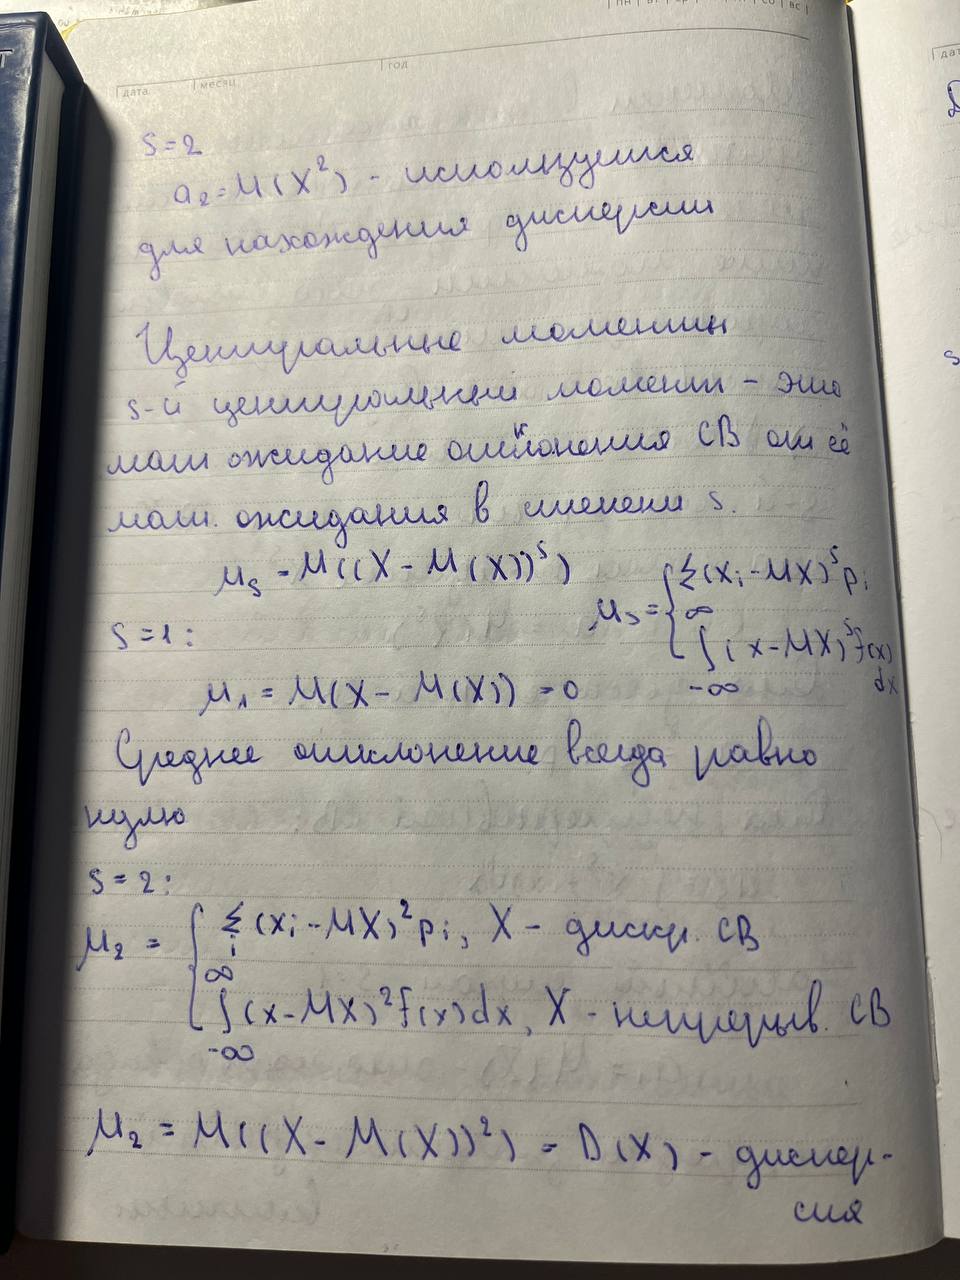 дата
месяц
год
s=2
a₂=M(X²) - используется
для нахождения дисперсии
Центральные моменты
s-й центральный момент – это
мат ожидание отклонения СВ от её
мат. ожидания в степени s.
μₛ = M((X – M(X))ˢ)
μₛ = { Σ(xᵢ – MX)ˢ pᵢ
∞
∫ (x – MX)ˢ f(x)
-∞ dx
s=1:
μ₁ = M(X – M(X)) = 0
Среднее отклонение всегда равно
нулю
s=2:
μ₂ = { Σ (xᵢ – MX)² pᵢ, X – дискр. СВ
i
∞
∫ (x – MX)² f(x) dx, X – непрерыв. СВ
-∞
μ₂ = M((X – M(X))²) = D(X) – диспер-
сия